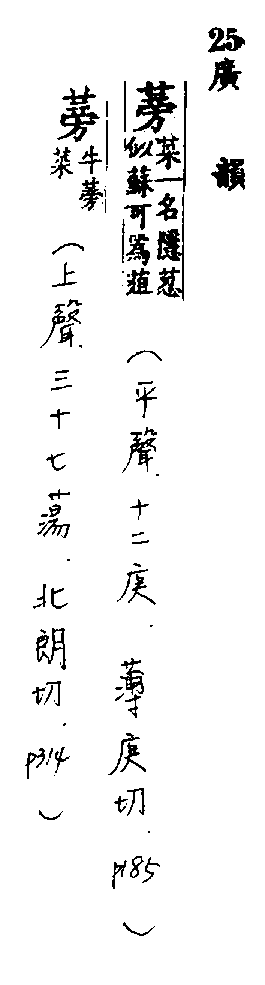 25廣韻
蒡菜一名隱荵似蘇可爲葅（平聲．十二庚．薄庚切．p185）
蒡牛蒡菜（上聲．三十七蕩．北朗切．p314）